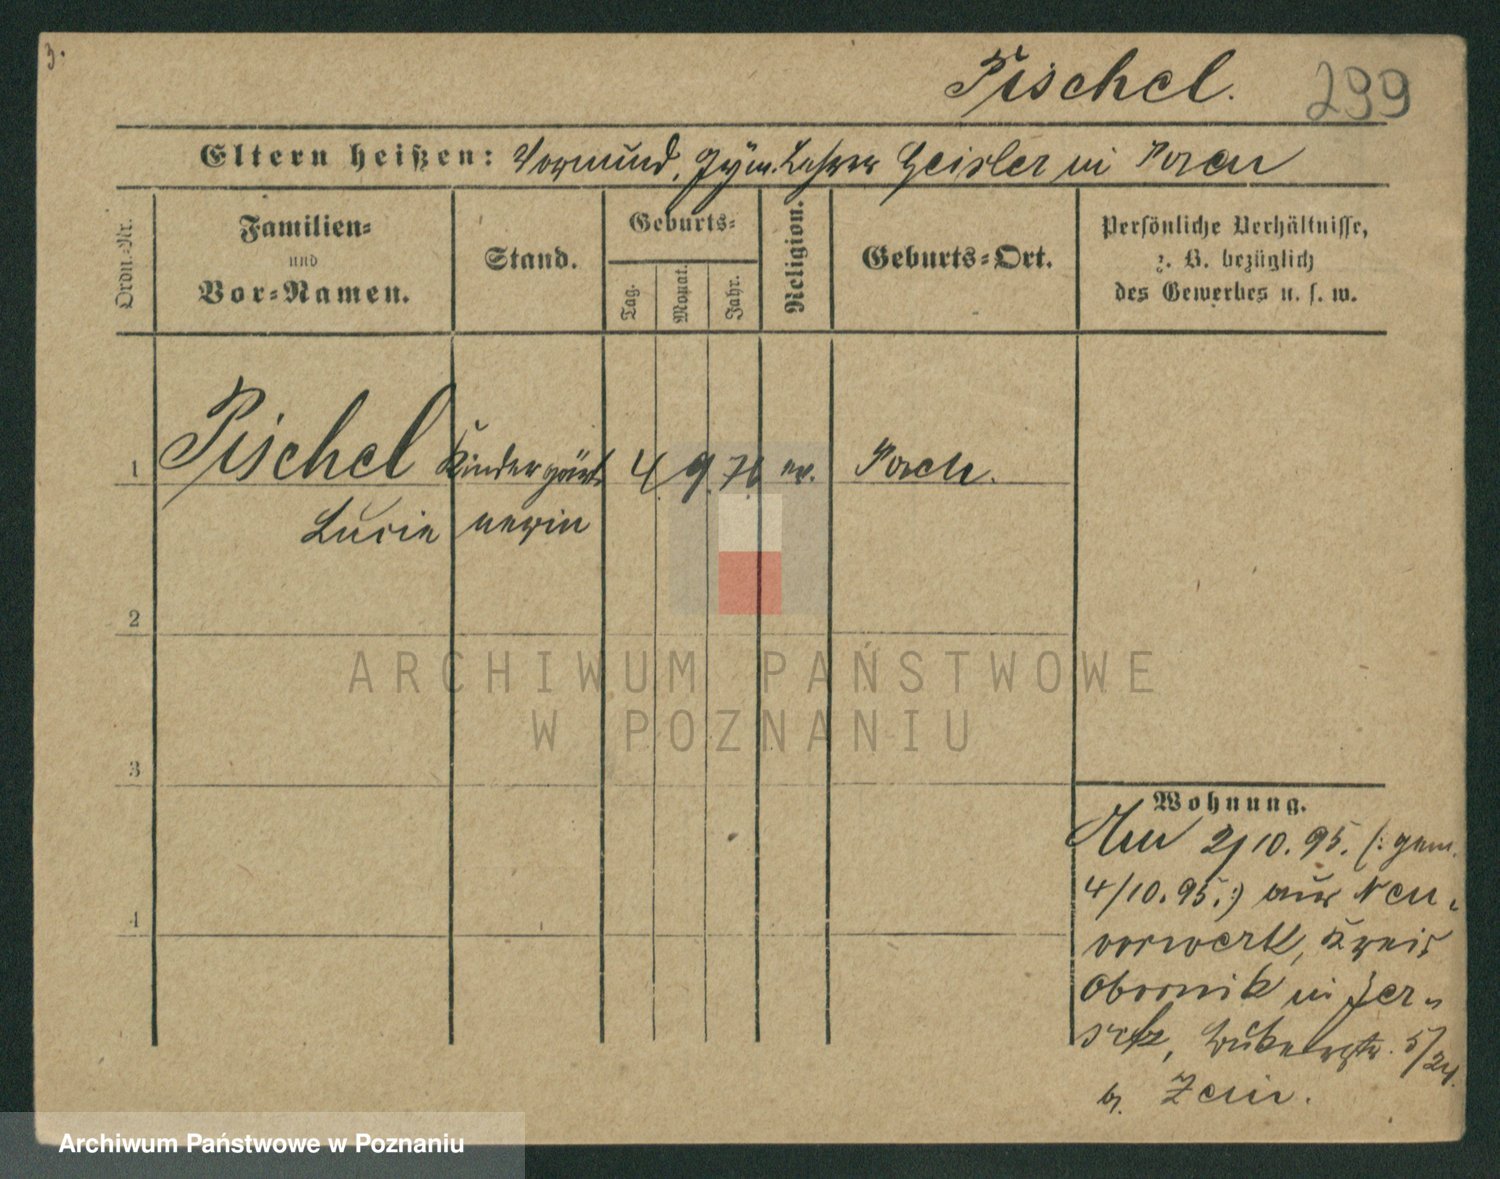 3.
Pischel.
299
Eltern heißen: Vormund, Gym. Lehrer Geisler in Posen
Ordn.-Nr.
Familien-
und
Vor-Namen.
Stand.
Geburts-
Tag.
Monat.
Jahr.
Religion.
Geburts-Ort.
Persönliche Verhältnisse,
z. B. bezüglich
des Gewerbes u. s. w.
1 Pischel Kindergärt- 4. 9. 76 ev. Posen.
Lucie nerin
2
3
4
Wohnung.
Am 2/10. 95. (: gem.
4/10. 95. :) aus Neu-
vorwerk, Kreis
Obornik in Jer-
sitz, 5/24.
b.
ARCHIWUM PAŃSTWOWE
W POZNANIU
Archiwum Państwowe w Poznaniu